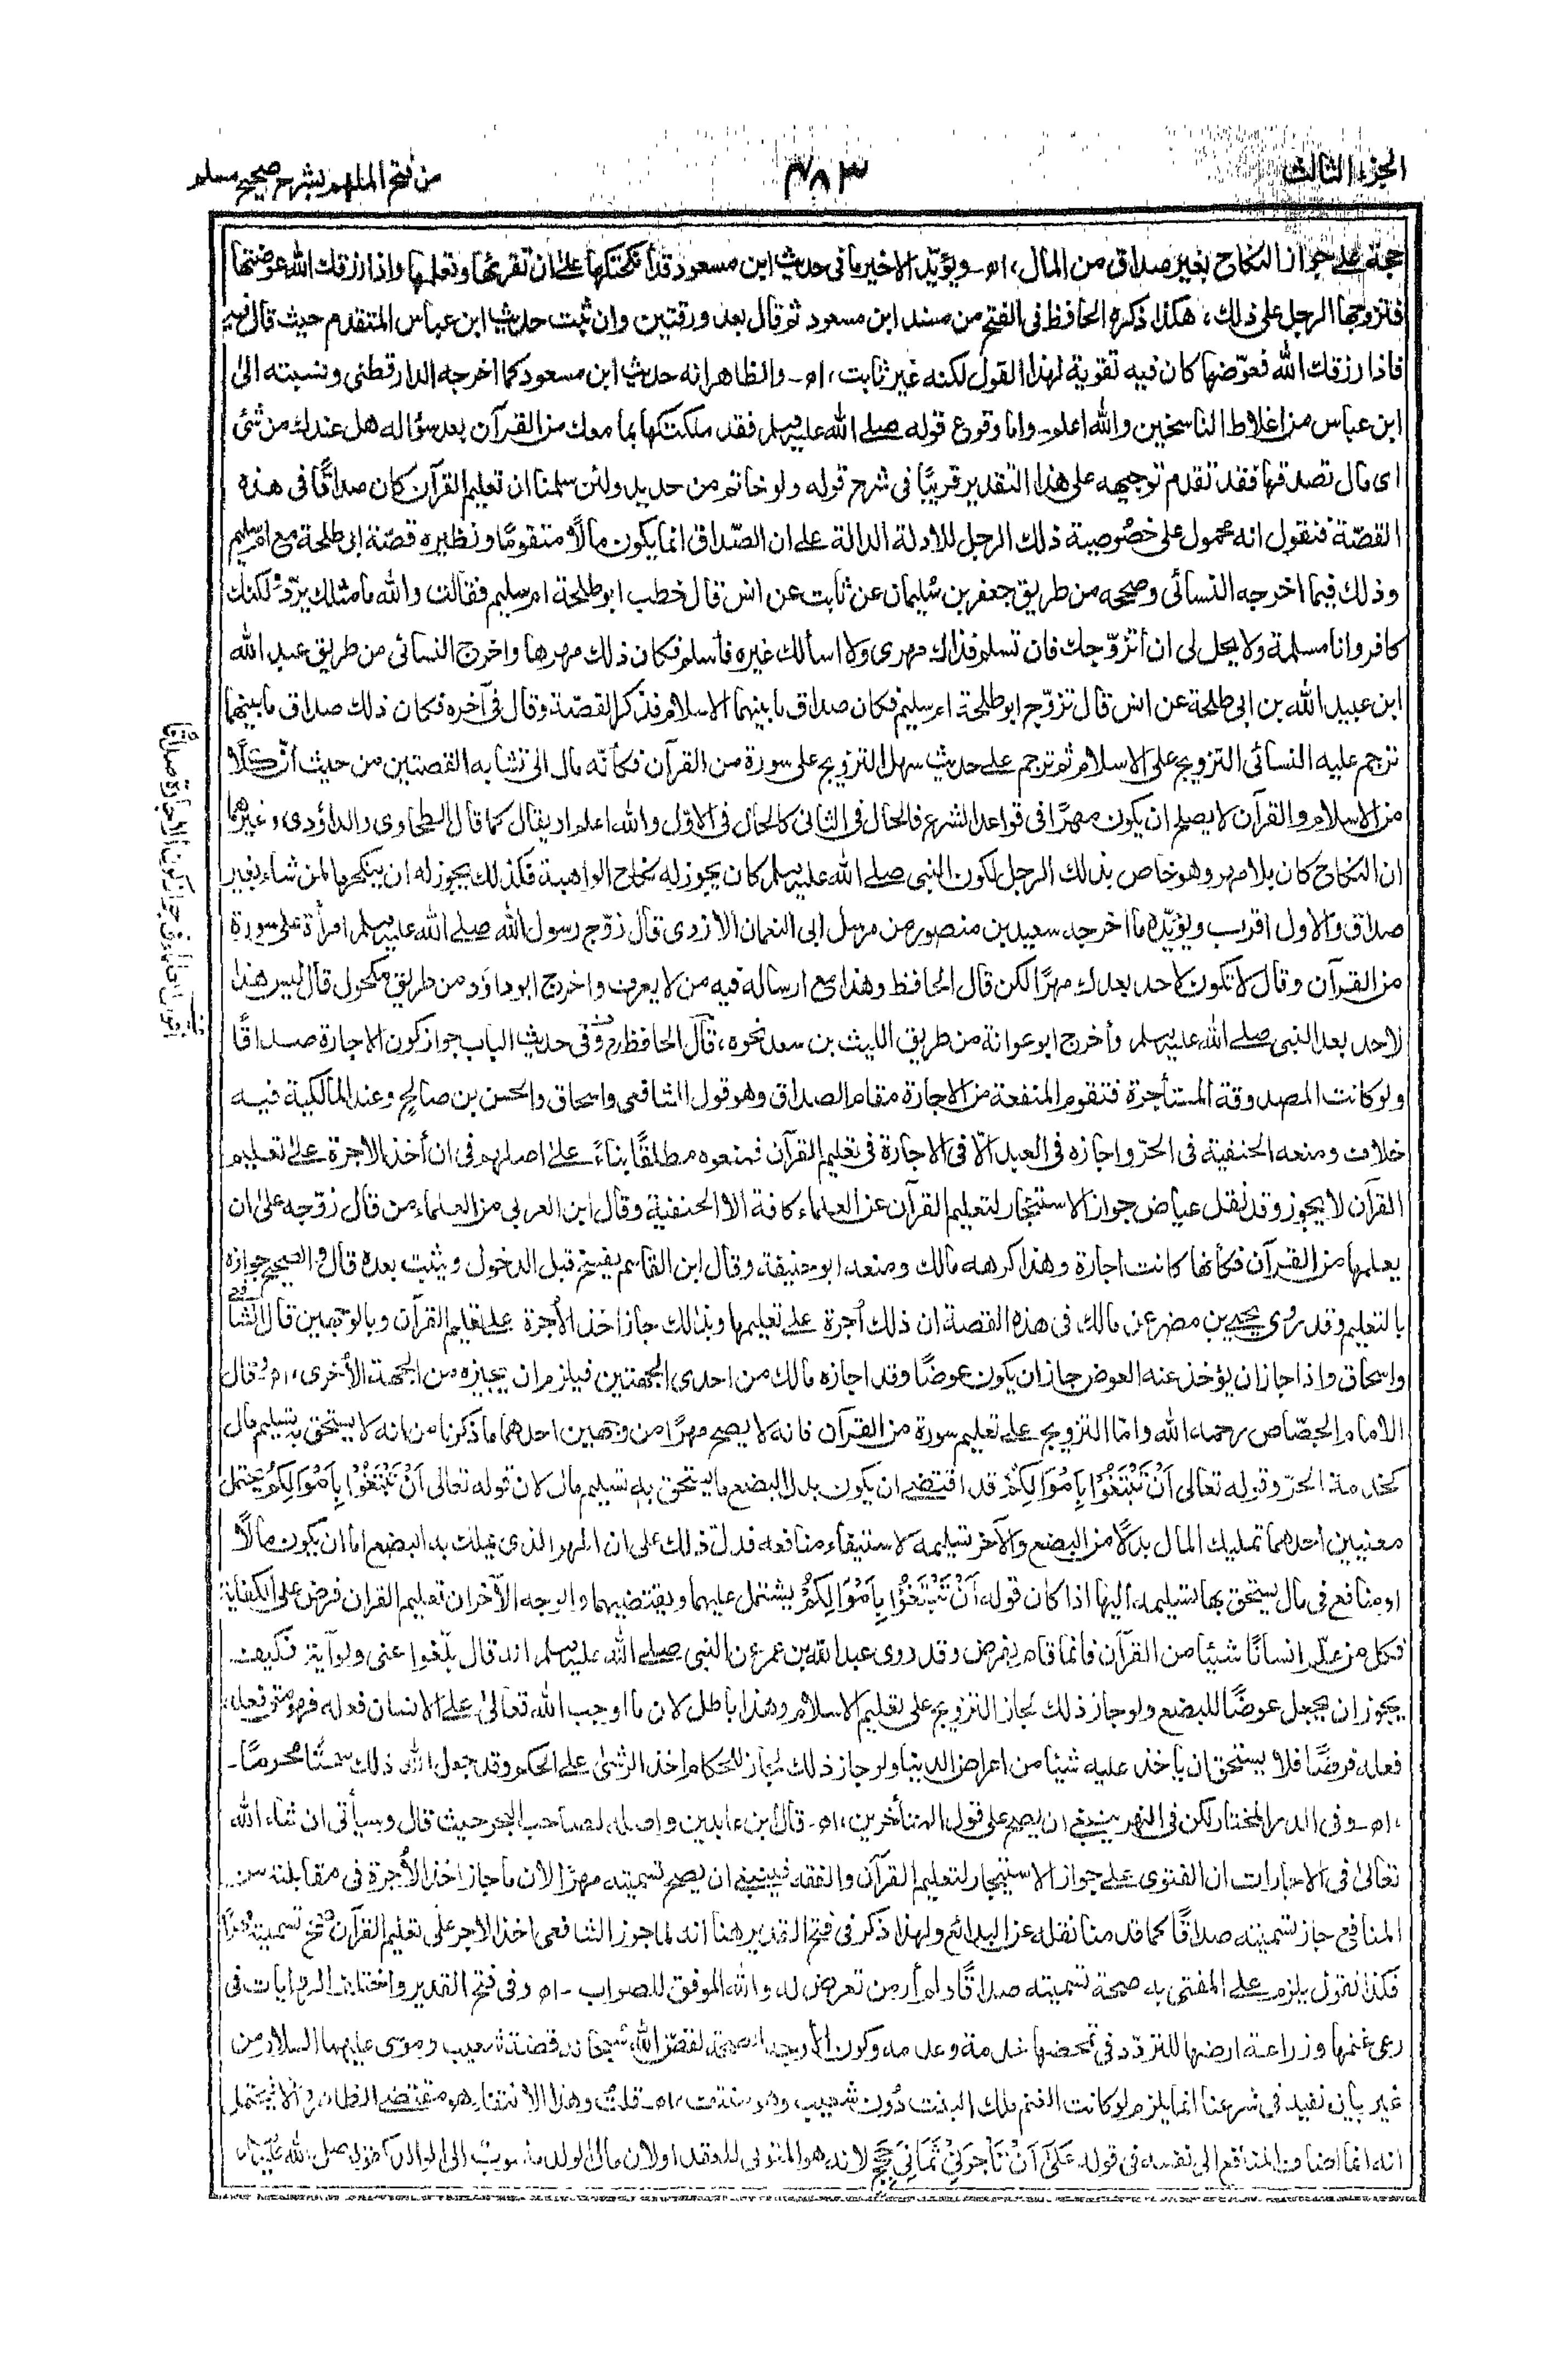 الجزء الثالث
٤٨٣
من فتح الملهم بشرح صحيح مسلم
حجة على جواز النكاح بغير صداق من المال، اھ۔ ويؤيّد الاخير ما فى حديث ابن مسعود قد أنكحتكها على ان تقرئها وتعلمها واذا رزقك الله عوضتها
فتزوجها الرجل على ذلك، هكذا ذكره الحافظ فى الفتح من مسند ابن مسعود ثم قال بعد ورقتين وان ثبت حديث ابن عباس المتقدم حيث قال فيه
فاذا رزقك الله فعوّضها كان فيه تقوية لهذا القول لكنه غير ثابت، اھ۔ والظاهر انه حديث ابن مسعود كما اخرجه الدارقطنى ونسبته الى
ابن عباس من اغلاط الناسخين والله اعلم۔ واما وقوع قوله صلے الله عليه وسلم فقد ملكتكها بما معك من القرآن بعد سؤاله هل عندك من شئ
اى مال تصدقها فقد تقدم توجيهه على هذا التقدير قريبًا فى شرح قوله ولو خاتم من حديد ولئن سلمنا ان تعليم القرآن كان صداقًا فى هذه
القصّة فنقول انه محمول على خصوصية ذلك الرجل للادلة الدالة على ان الصّداق انما يكون مالًا متقومًا ونظيره قصّة ابى طلحة مع ام سليم
وذلك فيما اخرجه النسائى وصححه من طريق جعفر بن سُليمان عن ثابت عن انس قال خطب ابو طلحة ام سليم فقالت والله ما مثلك يردّ ولكنك
كافر وانا مسلمة ولا يحل لى ان أتزوّجك فان تسلم فذاك مهرى ولا اسألك غيره فأسلم فكان ذلك مهرها واخرج النسائى من طريق عبد الله
ابن عبيد الله بن ابى طلحة عن انس قال تزوّج ابو طلحة ام سليم فكان صداق ما بينهما الاسلام فذكر القصّة وقال فى آخره فكان ذلك صداق ما بينهما
ترجم عليه النسائى التزويج على الاسلام ثم ترجم على حديث سهل التزويج على سورة من القرآن فكأنّه مال الى تشابه القصتين من حيث أنّ كلًّا
من الاسلام والقرآن لا يصلح ان يكون مهرًا فى قواعد الشرع فالحال فى الثانى كالحال فى الاوّل والله اعلم او يقال كما قال الطحاوى والداؤدى وغيرهما
ان النكاح كان بلا مهر وهو خاص بذلك الرجل لكون النبى صلے الله عليه وسلم كان يجوز له نكاح الواهبة فكذلك يجوز له ان ينكحها لمن شاء بغير
صداق والاول اقرب ويؤيّده ما اخرجه سعيد بن منصور من مرسل ابى النعمان الازدى قال زوّج رسول الله صلے الله عليه وسلم امرأة على سورة
من القرآن وقال لا تكون لاحد بعدك مهرًا لكن قال الحافظ وهذا مع ارساله فيه من لا يعرف واخرج ابو داؤد من طريق مكحول قال ليس هذا
لاحد بعد النبى صلے الله عليه وسلم وأخرج ابو عوانة من طريق الليث بن سعد نحوه، قال الحافظ رح وفى حديث الباب جواز كون الاجارة صداقًا
ولو كانت المصدوقة المستأجرة فتقوم المنفعة من الاجارة مقام الصداق وهو قول الشافعى واسحاق والحسن بن صالح وعند المالكية فيه
خلاف ومنعه الحنفية فى الحرّ واجازه فى العبد الّا فى الاجارة فى تعليم القرآن فمنعوه مطلقًا بناءً على اصلهم فى ان أخذ الاجرة على تعليم
القرآن لا يجوز وقد نقل عياض جواز الاستئجار لتعليم القرآن عن العلماء كافة الا الحنفية وقال ابن العربى من العلماء من قال زوّجه على ان
يعلمها من القرآن فكأنها كانت اجارة وهذا كرهه مالك ومنعه ابو حنيفة وقال ابن القاسم يفسخ قبل الدخول ويثبت بعده قال والصحيح جوازه
بالتعليم وقد روى يحيى بن مضر عن مالك فى هذه القصة ان ذلك أجرة على تعليمها وبذلك جاز اخذ الأجرة على تعليم القرآن وبالوجهين قال الشافعى
واسحاق واذا جاز ان يؤخذ عنه العوض جاز ان يكون عوضًا وقد اجازه مالك من احدى الجهتين فيلزم ان يجيزه من الجهة الأخرى، اھ وقال
الامام الجصّاص رحمه الله واما التزويج على تعليم سورة من القرآن فانه لا يصح مهرًا من وجهين احدهما ما ذكرنا من انه لا يستحق به تسليم مال
كخدمة الحرّ وقوله تعالى اَنْ تَبْتَغُوْا بِاَمْوَالِكُمْ قد اقتضى ان يكون بدل البضع ما يستحق به تسليم مال لان قوله تعالى اَنْ تَبْتَغُوْا بِاَمْوَالِكُمْ يحتمل
معنيين احدهما تمليك المال بدلًا من البضع والآخر تسليمه لاستيفاء منافعه فدل ذلك على ان المهر الذى يملك به البضع اما ان يكون مالًا
او منافع فى مال يستحق بها تسليمه اليها اذا كان قوله اَنْ تَبْتَغُوْا بِاَمْوَالِكُمْ يشتمل عليهما ويقتضيهما والوجه الآخر ان تعليم القران فرض على الكفاية
فكل من علّم انسانًا شيئا من القرآن فانما قام بفرض وقد روى عبد الله بن عمر عن النبى صلے الله عليه وسلم انه قال بلّغوا عنى ولو آية فكيف
يجوز ان يجعل عوضًا للبضع ولو جاز ذلك لجاز التزويج على تعليم الاسلام وهذا باطل لان ما اوجب الله تعالىٰ على الانسان فعله فهو متى فعله
فعله فرضًا فلا يستحق ان يأخذ عليه شيئا من اعراض الدنيا ولو جاز ذلك لجاز للحكام اخذ الرشى على الحكم وقد جعل الله ذلك سحتًا محرمًا۔
اھ۔ وفى الدر المختار لكن فى النهر ينبغى ان يصح على قول المتأخرين، اھ۔ قال ابن عابدين واصله لصاحب البحر حيث قال وسيأتى ان شاء الله
تعالىٰ فى الاجارات ان الفتوى على جواز الاستيجار لتعليم القرآن والفقه فينبغى ان يصح تسميته مهرًا لان ما جاز اخذ الأجرة فى مقابلته من
المنافع جاز تسميته صداقًا كما قدمنا نقله عن البدائع ولهذا ذكر فى فتح القدير هنا انه لما جوز الشافعى اخذ الأجر على تعليم القرآن صح تسميته مهرًا
فكذا نقول يلزم على المفتى به صحة تسميته صداقًا ولم أر من تعرض له والله الموفق للصواب۔ اھ وفى فتح القدير واختلف الروايات فى
رعى غنمها وزراعة ارضها للتردّد فى تمحضها خدمة وعدمه وكون الاوجه الصحة لقصّ الله سبحانه قصة شعيب وموسى عليهما السلام من
غير بيان نفيه فى شرعنا انما يلزم لو كانت الغنم ملك البنت دون شعيب وهو منتف، اھ۔ قلت وهذا الانتفاء هو مقتضى الظاهر
انه انما اضاف المنافع الى نفسه فى قوله عَلٰى اَنْ تَأْجُرَنِيْ ثَمَانِيَ حِجَجٍ لانه هو المتولى للعقد او لان مال الولد منسوب الى الوالد كقوله صلى الله عليه